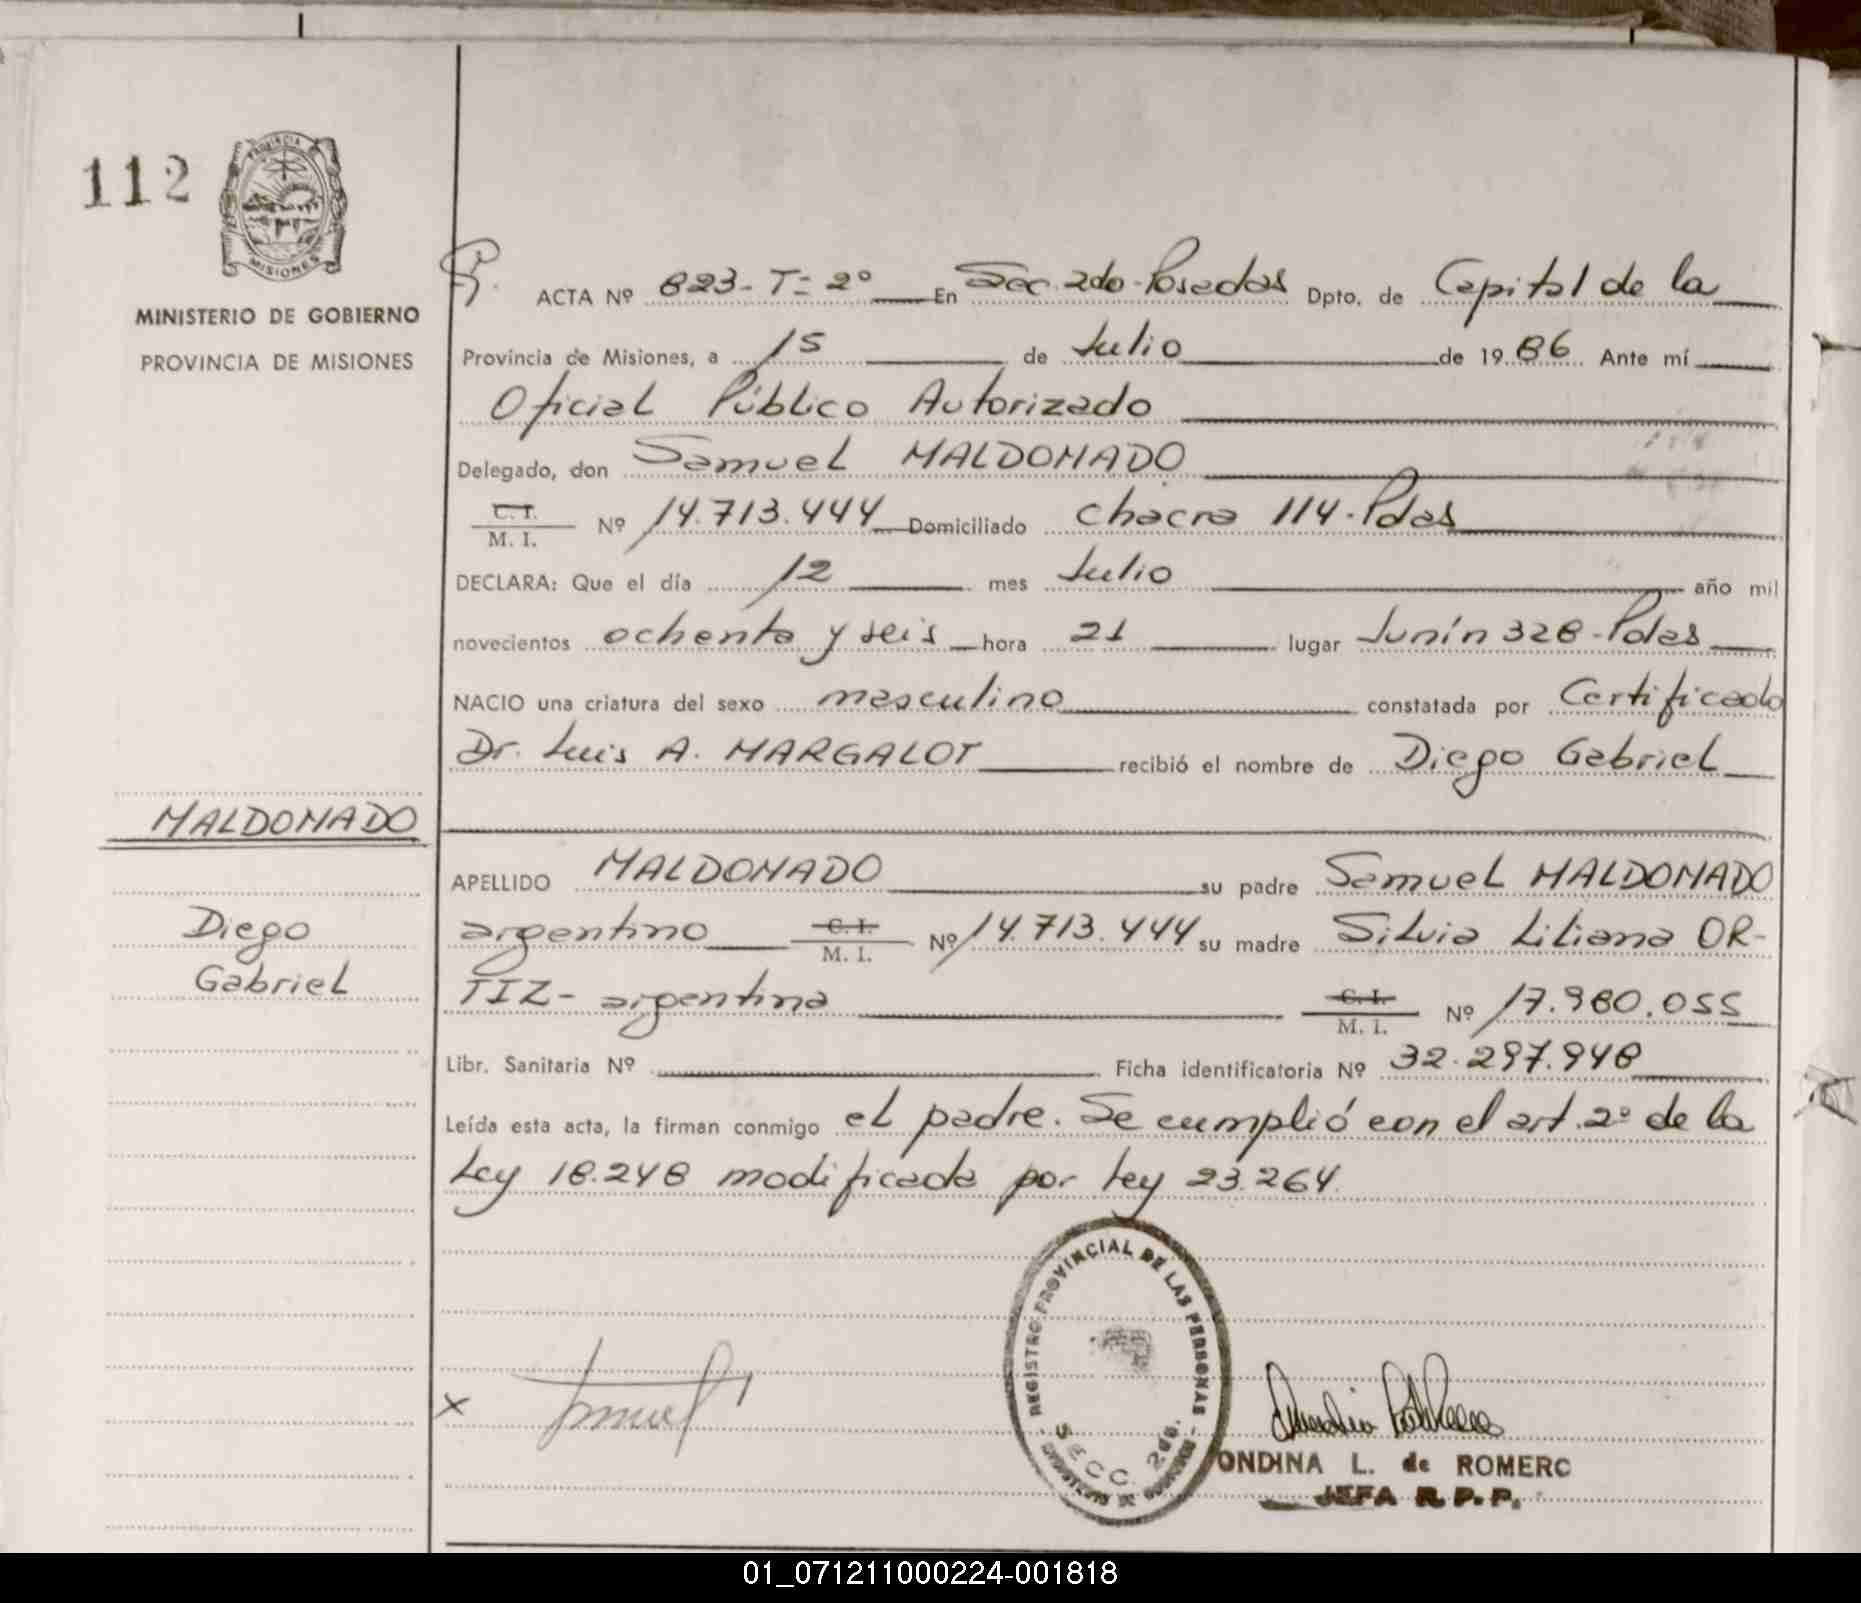 112
PROVINCIA DE
MISIONES
MINISTERIO DE GOBIERNO
PROVINCIA DE MISIONES
ACTA Nº 823-T=2º En Sec. 2do-Posadas Dpto. de Capital de la
Provincia de Misiones, a 15 de Julio de 1986 Ante mí
Oficial Público Autorizado
Delegado, don Samuel MALDONADO
C. I.
M. I. Nº 14.713.444 Domiciliado chacra 114-Pdas
DECLARA: Que el día 12 mes Julio año mil
novecientos ochenta y seis hora 21 lugar Junín 328-Pdas
NACIO una criatura del sexo masculino constatada por Certificado
Dr. Luis A. MARGALOT recibió el nombre de Diego Gabriel
MALDONADO
Diego
Gabriel
APELLIDO MALDONADO su padre Samuel MALDONADO
argentino C. I. M. I. Nº 14.713.444 su madre Silvia Liliana OR-
TIZ- argentina C. I. M. I. Nº 17.980.055
Libr. Sanitaria Nº Ficha identificatoria Nº 32.297.948
Leída esta acta, la firman conmigo el padre. Se cumplió con el art. 2º de la
Ley 18.248 modificada por Ley 23.264.
REGISTRO PROVINCIAL DE LAS PERSONAS
SECC. 2da.
X
ONDINA L. de ROMERO
JEFA R.P.P.
01_071211000224-001818